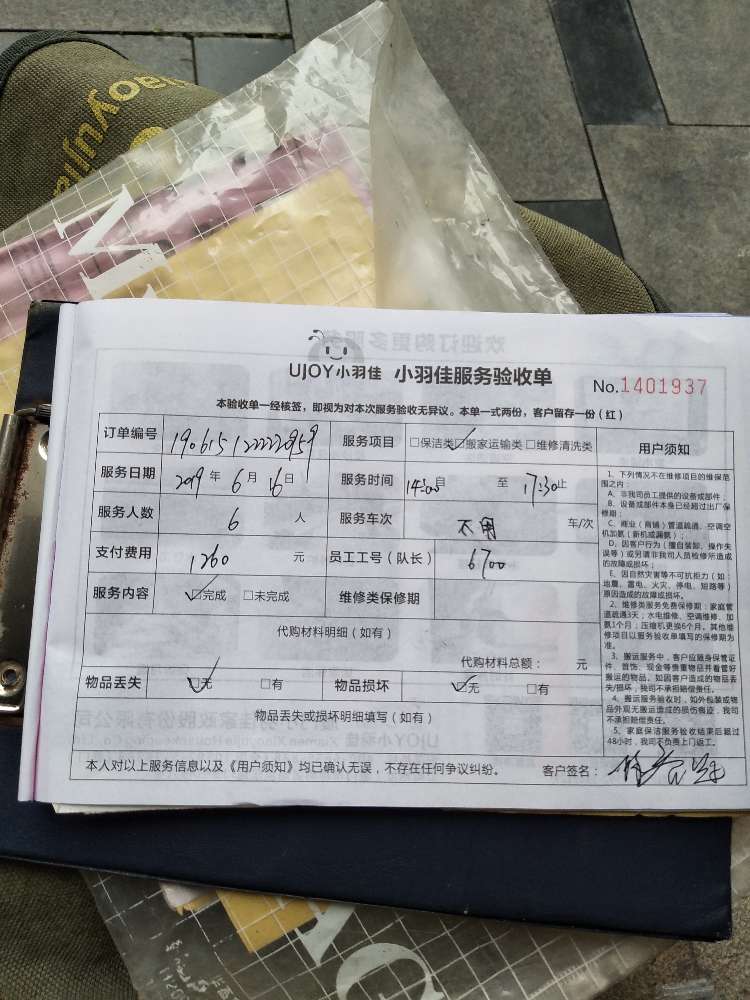 aoyujia
UJOY小羽佳 小羽佳服务验收单
No.1401937
本验收单一经核签，即视为对本次服务验收无异议。本单一式两份，客户留存一份（红）
订单编号 190615122222959 服务项目 □保洁类☑搬家运输类□维修清洗类
服务日期 2019年6月16日 服务时间 14:00自至17:30止
服务人数 6人 服务车次 不用 车/次
支付费用 1260元 员工工号（队长） 6700
服务内容 ☑完成 □未完成 维修类保修期
代购材料明细（如有）
代购材料总额： 元
物品丢失 ☑无 □有 物品损坏 ☑无 □有
物品丢失或损坏明细填写（如有）
本人对以上服务信息以及《用户须知》均已确认无误，不存在任何争议纠纷。 客户签名：
用户须知
1、下列情况不在维修项目的维保范
围之内：
A、非我司员工提供的设备或部件；
B、设备或部件本身已经超过出厂保
修期；
C、商业（商铺）管道疏通、空调空
机加氨（新机或漏氨）；
D、因客户行为（擅自装卸、操作失
误等）或另请非我司人员检修所造成
的故障或损坏；
E、因自然灾害等不可抗拒力（如：
地震、雷电、火灾、停电、短路等）
原因造成的故障或损坏。
2、维修类服务免费保修期：家庭管
道疏通3天；水电维修、空调维修、加
氨1个月；压缩机更换6个月。其他维
修项目以服务验收单填写的保修期为
准。
3、搬运服务中，客户应随身保管证
件、首饰、现金等贵重物品并看管好
搬运的物品。如因客户造成的物品丢
失/损坏，我司不承担赔偿责任。
4、搬运服务验收时，如外包装或物
品外观无搬运造成的损伤痕迹，我司
不承担赔偿责任。
5、家庭保洁服务验收结束后超过
48小时，我司不负责上门返工。